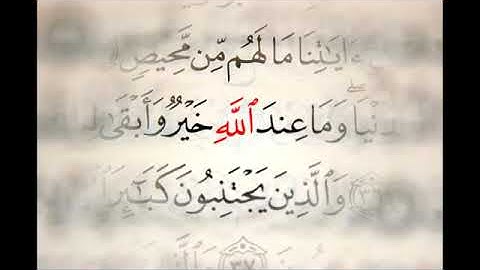 ءَايَٰتِنَا مَا لَهُم مِّن مَّحِيصٍ
ٱلدُّنْيَا ۖ وَمَا عِندَ ٱللَّهِ خَيْرٌ وَأَبْقَىٰ
وَٱلَّذِينَ يَجْتَنِبُونَ كَبَٰٓئِرَ
٣٧